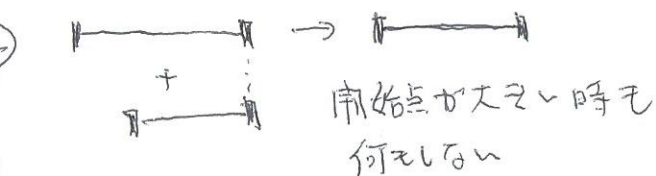 +
開始点が大きい時も
何もしない